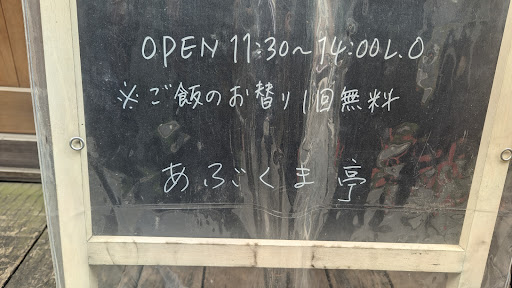 OPEN 11:30～14:00L.O
※ご飯のお替り1回無料
あぶくま亭